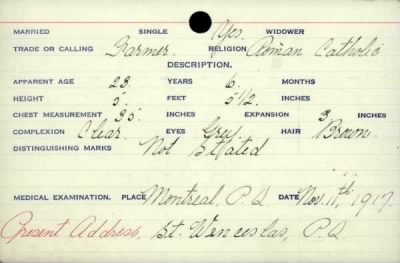 MARRIED SINGLE Yes. WIDOWER
TRADE OR CALLING Farmer. RELIGION Roman Catholic
DESCRIPTION.
APPARENT AGE 23. YEARS 6. MONTHS
HEIGHT 5. FEET 5 1/2. INCHES
CHEST MEASUREMENT 35. INCHES EXPANSION 3 INCHES
COMPLEXION Clear. EYES Grey. HAIR Brown.
DISTINGUISHING MARKS Not Stated
MEDICAL EXAMINATION. PLACE Montreal, P.Q. DATE Nov. 11th, 1917.
Present Address, St. Wenceslas, P.Q.